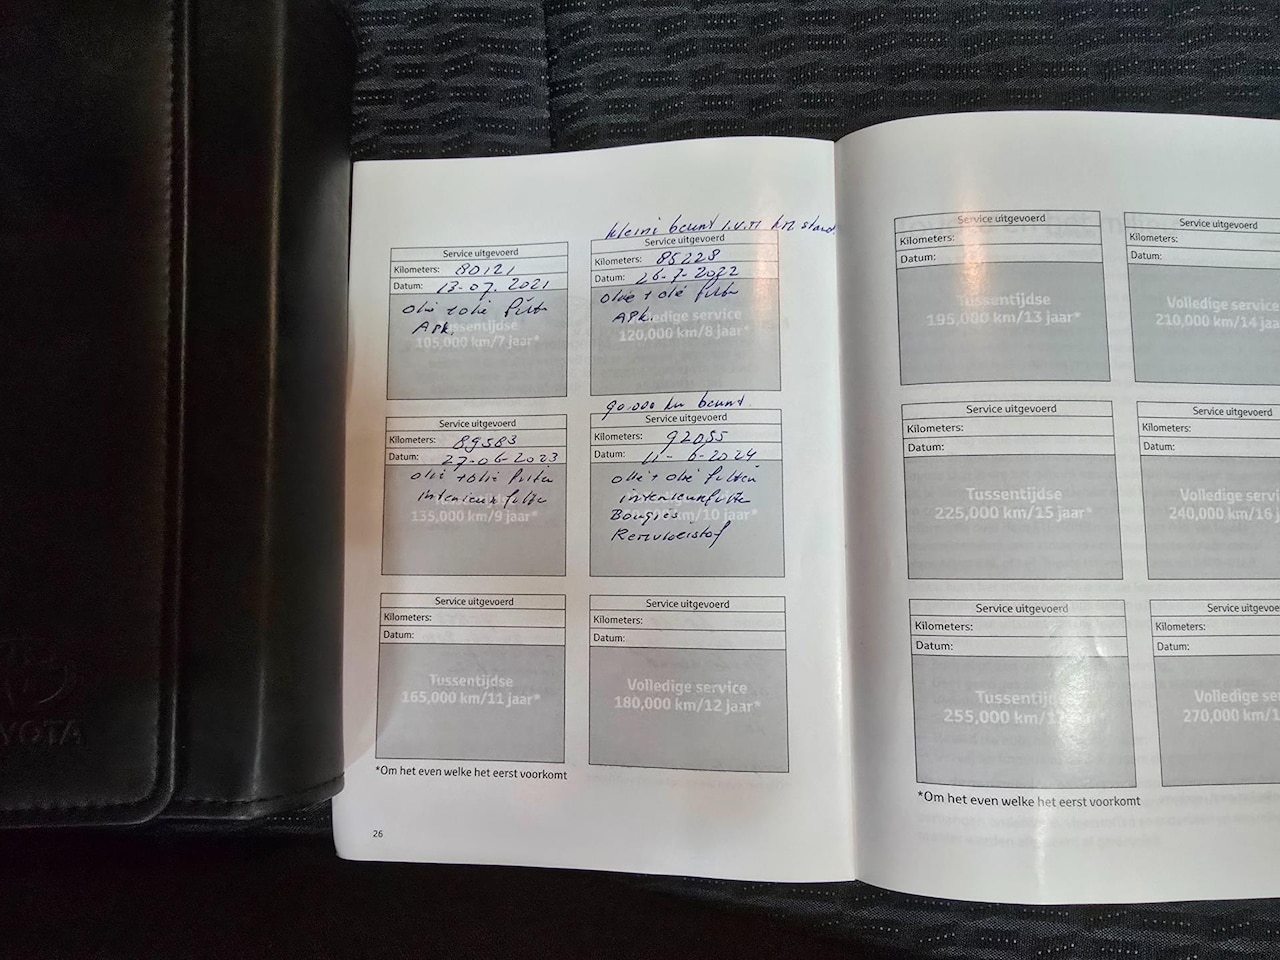 YOTA
kleini beurt i.v.m km stand.
Service uitgevoerd
Kilometers: 80121
Datum: 13-07. 2021
olie + olie filter
APK.
Tussentijdse
105,000 km/7 jaar*
Service uitgevoerd
Kilometers: 85228
Datum: 26-7-2022
olie + olie filter
APK.
Volledige service
120,000 km/8 jaar*
Service uitgevoerd
Kilometers: 89583
Datum: 27-06-2023
olie + olie filter
interieurfilter
135,000 km/9 jaar*
90.000 km beurt
Service uitgevoerd
Kilometers: 92055
Datum: 11-6-2024
olie + olie filter
interieurfilter
km/10 jaar*
Bougies
Remvloeistof
Service uitgevoerd
Kilometers:
Datum:
Tussentijdse
165,000 km/11 jaar*
Service uitgevoerd
Kilometers:
Datum:
Volledige service
180,000 km/12 jaar*
*Om het even welke het eerst voorkomt
26
Service uitgevoerd
Kilometers:
Datum:
Tussentijdse
195,000 km/13 jaar*
Service uitgevoerd
Kilometers:
Datum:
Volledige service
210,000 km/14 jaa
Service uitgevoerd
Kilometers:
Datum:
Tussentijdse
225,000 km/15 jaar*
Service uitgevoerd
Kilometers:
Datum:
Volledige servic
240,000 km/16 j
Service uitgevoerd
Kilometers:
Datum:
Tussentijd
255,000 km/1
Service uitgevoe
Kilometers:
Datum:
Volledige se
270,000 km/1
*Om het even welke het eerst voorkomt